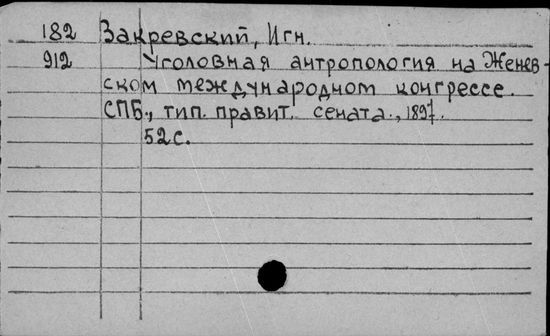 182 Закревский, Игн.
912 Уголовная антропология на Женев-
ском международном конгрессе.
СПБ., тип. правит. сената., 1897.
52 с.